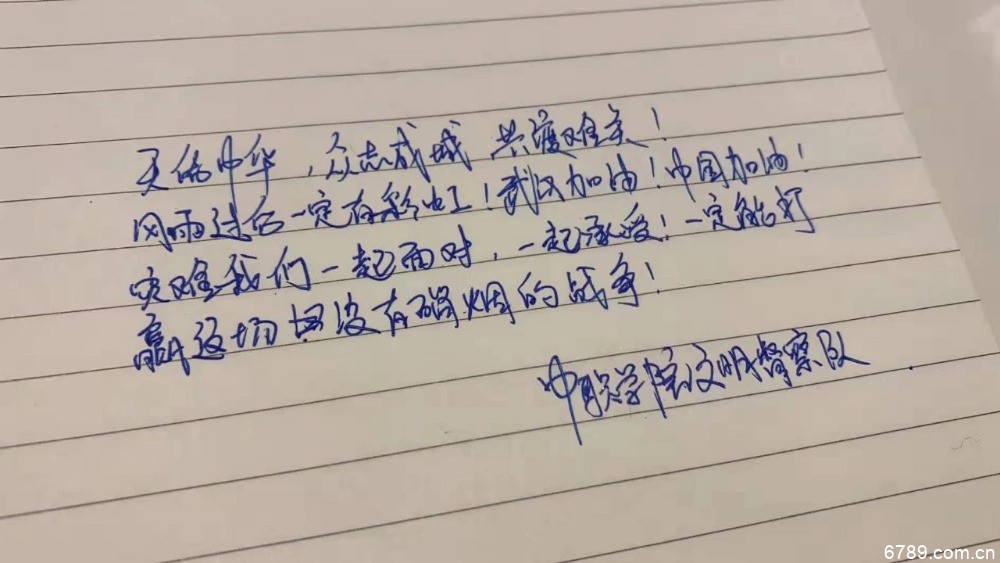 天佑中华，众志成城 共渡难关！
风雨过后一定有彩虹！武汉加油！中国加油！
灾难我们一起面对，一起承受！一定能打
赢这场没有硝烟的战争！
中职学院文明督察队
6789.com.cn